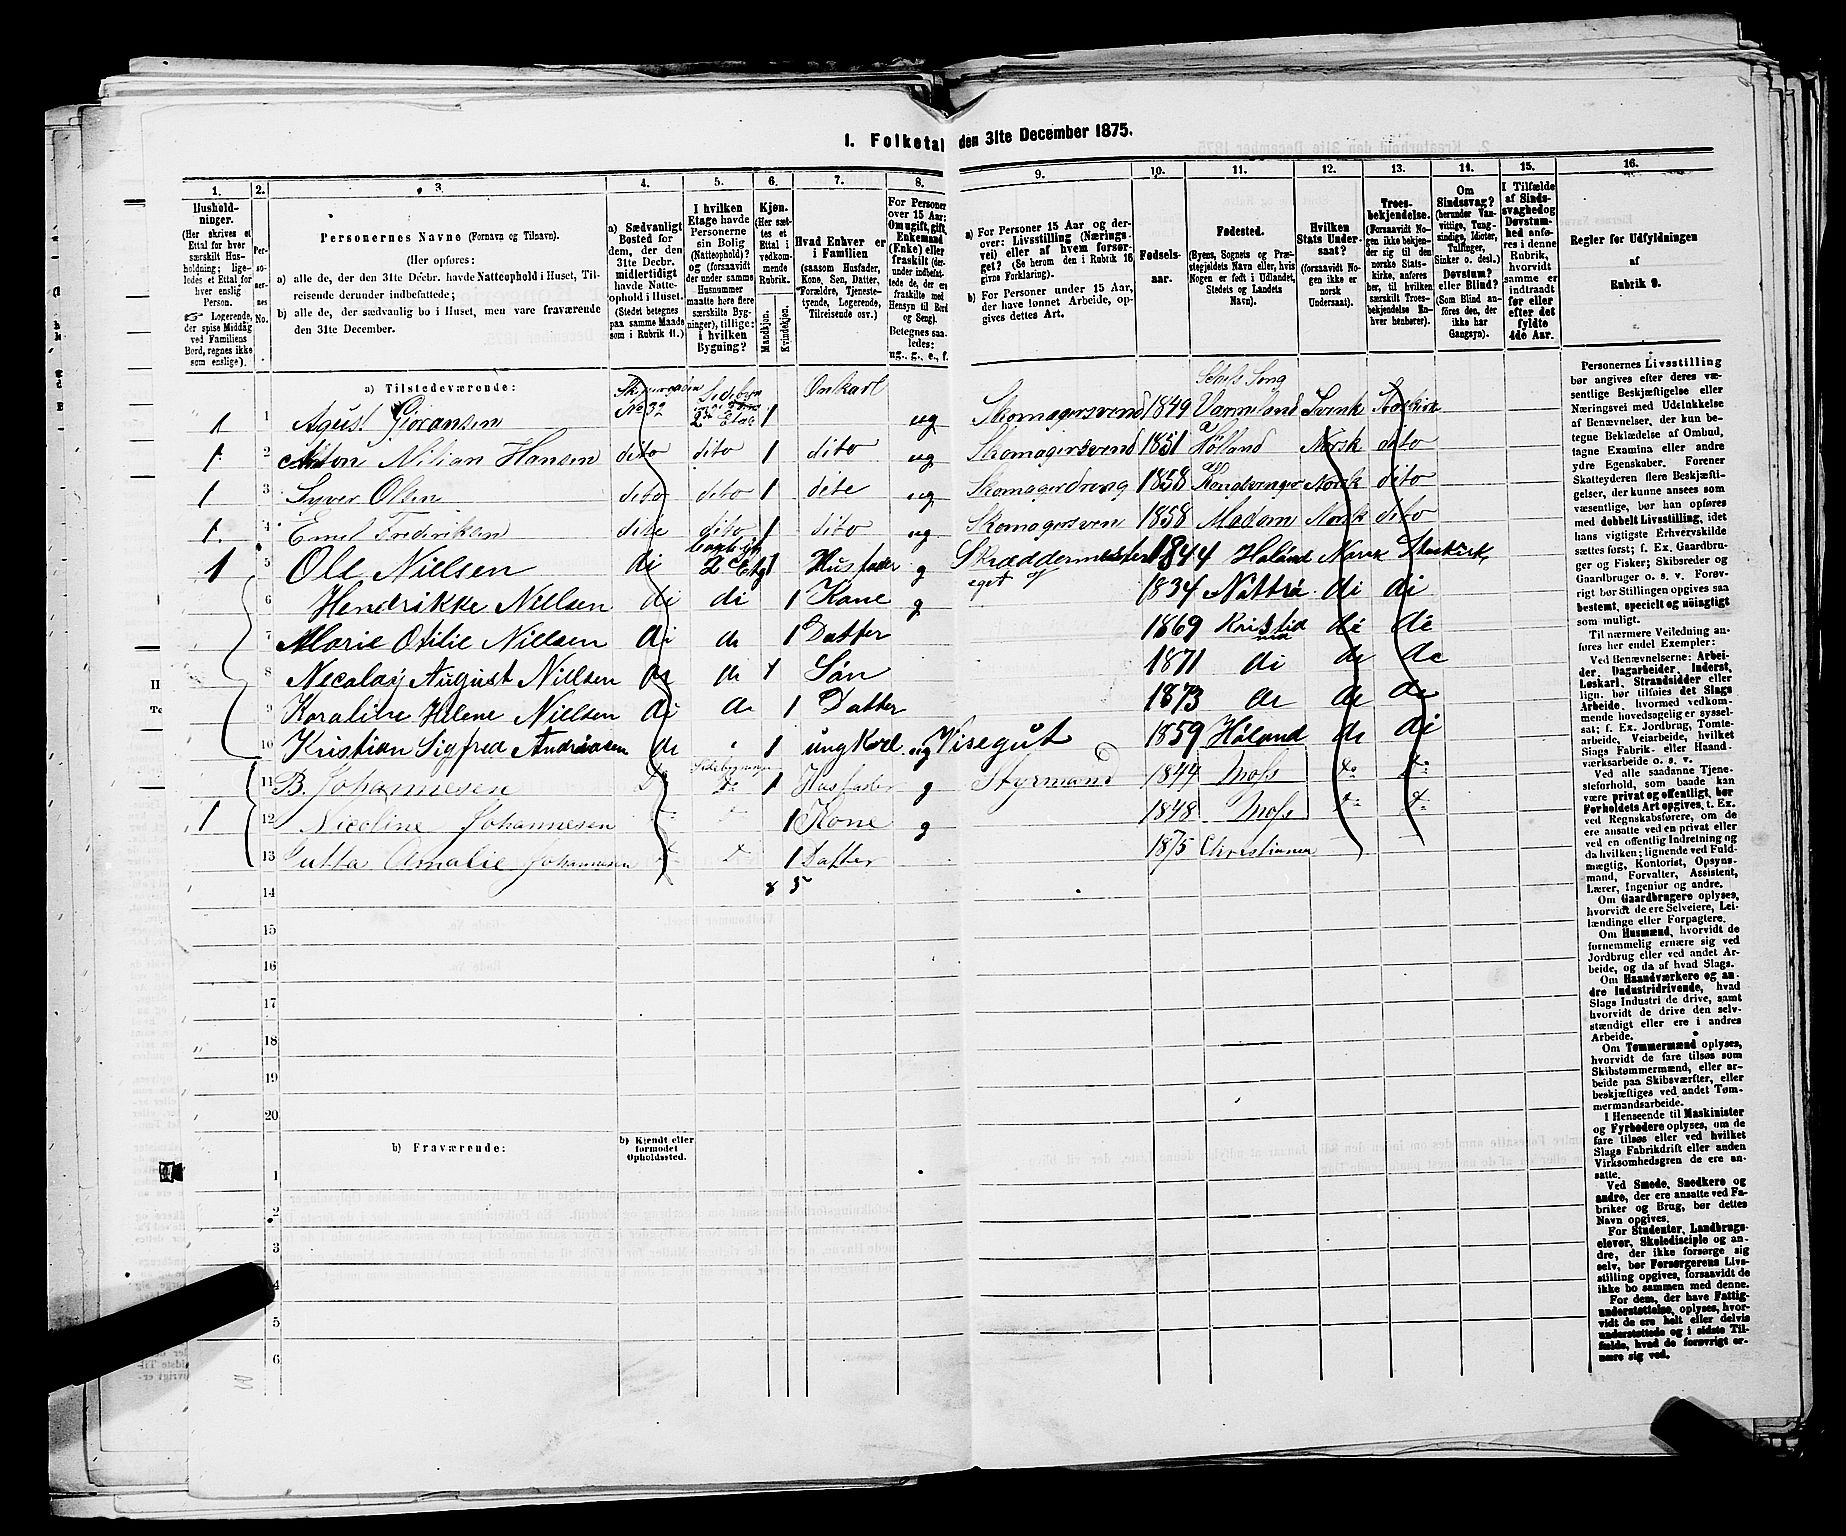 I. Folketal den 31te December 1875.
1. 2. 3. 4. 5. 6. 7. 8. 9. 10. 11. 12. 13. 14. 15. 16.
Husholdninger.
(Her skrives et Ettal for hver særskilt Husholdning; ligeledes et Ettal for hver enslig Person.
Logerende, der spise Middag ved Familiens Bord, regnes ikke som enslige).
Personernes No.
Personernes Navne (Fornavn og Tilnavn).
(Her opføres:
a) alle de, der den 31te Decbr. havde Natteophold i Huset, Tilreisende derunder indbefattede;
b) alle de, der sædvanlig bo i Huset, men vare fraværende den 31te December.
a) Sædvanligt Bosted for dem, der den 31te Decbr. midlertidigt havde Natteophold i Huset. (Stedet betegnes paa samme Maade som i Rubrik 11.)
I hvilken Etage havde Personerne sin Bolig (Natteophold)? og (forsaavidt der under samme Husnummer maatte høre flere særskilte Bygninger), tillige: i hvilken Bygning?
Kjøn. (Her sættes et Ettal i vedkommende Rubrik.
Mandkjøn. Kvindekjøn.
Hvad Enhver er i Familien
(saasom Husfader, Kone, Søn, Datter, Forældre, Tjenestetyende, Logerende, Tilreisende osv.)
For Personer over 15 Aar: Om ugift, gift, Enkemand (Enke) eller fraskilt
Betegnes saaledes: ug., g., e., f.
a) For Personer 15 Aar og derover: Livsstilling (Næringsvei) eller af hvem forsørget? (Se herom den i Rubrik 16 givne Forklaring).
b) For Personer under 15 Aar, der have lønnet Arbeide, opgives dettes Art.
Fødselsaar.
Fødested.
(Byens, Sognets og Præstegjeldets Navn eller, hvis Nogen er født i Udlandet, Stedets og Landets Navn).
Hvilken Stats Undersaat?
(forsaavidt Nogen ikke er norsk Undersaat).
Troesbekjendelse.
(Forsaavidt Nogen ikke bekjender sig til den norske Statskirke, anføres her, til hvilken særskilt Troesbekjendelse Enhver henhører).
Om Sindssvag? (herunder Vanvittige, Tungsindige, Idioter, Tullinger, Sinker o. desl.) Døvstum? eller Blind? (Som Blind anføres den, der ikke har Gangsyn).
I Tilfælde af Sindssvaghed og Døvstumhed anføres i denne Rubrik, hvorvidt samme er indtraadt før eller efter det fyldte 4de Aar.
Regler for Udfyldningen af Rubrik 9.
a) Tilstedeværende:
1 1 Agust Gjøransen No 32 2 Etag 1 Onkarl ug Skomagersvend 1849 Varmeland Svensk
1 2 Anton Nilian Hansen dito dito 1 dito ug Skomagersvend 1851 Høland Norsk dito
1 3 Syver Olsen dito dito 1 dito ug Skomagerdreng 1858 Norsk dito
1 4 Emil Fredriksen dito dito 1 dito ug Skomagersven 1858 Norsk dito
1 5 Ole Nielsen di 2 Etg 1 Husfader g Skræddermester 1844 Høland Norsk Statskirk
6 Hendrikke Nielsen di di 1 Kone g 1834 di di
7 Marie Otilie Nielsen di di 1 Datter 1869 Kristiania di di
8 Necolay August Nielsen di di 1 Søn 1871 di di di
9 Karaline Helene Nielsen di di 1 Datter 1873 di di di
10 Kristian Sigfred Andreasen di 1 ung Karl ug Visegut 1859 Høland di di
11 B. Johannesen Do Sidebygningen Do 1 Husfader g Styrmand 1844 Moss Do Do
1 12 Nicoline Johannesen 1 Kone g 1848 Moss Do Do
13 Jutta Amalie Johannesen 1 Datter 1875 Christiania
14 8 5
15
16
17
18
19
20
b) Fraværende: b) Kjendt eller formodet Opholdssted.
1
2
3
4
5
6
Personernes Livsstilling bør angives efter deres væsentlige Beskjæftigelse eller Næringsvei med Udelukkelse af Benævnelser, der kun betegne Beklædelse af Ombud, tagne Examina eller andre ydre Egenskaber. Forener Skatteyderen flere Beskjæftigelser, der kunne ansees som væsentlige, bør han opføres med dobbelt Livsstilling, idet hans vigtigste Erhvervskilde sættes først; f. Ex. Gaardbruger og Fisker; Skibsreder og Gaardbruger o. s. v. Forøvrigt bør Stillingen opgives saa bestemt, specielt og nøiagtigt som muligt.
Til nærmere Veiledning anføres her endel Exempler:
Ved Benævnelserne: Arbeider, Dagarbeider, Inderst, Løskarl, Strandsidder eller lign. bør tilføies det Slags Arbeide, hvormed vedkommende hovedsagelig er sysselsat; f. Ex. Jordbrug, Tomtearbeide, Veiarbeide, hvilket Slags Fabrik- eller Haandværksarbeide o. s. v.
Ved alle saadanne Tjenesteforhold, som baade kan være private og offentligt, bør Forholdets Art opgives, t. Ex. ved Regnskabsførere, om de ere ansatte ved en privat eller ved en offentlig Indretning og da hvilken; lignende ved Fuldmægtig, Kontorist, Opsynsmand, Forvalter, Assistent, Lærer, Ingeniør og andre.
Om Gaardbrugere oplyses, hvorvidt de ere Selveiere, Leilændinge eller Forpagtere.
Om Husmænd, hvorvidt de fornemmelig ernære sig ved Jordbrug eller ved andet Arbeide, og da af hvad Slags.
Om Haandværkere og andre Industridrivende, hvad Slags Industri de drive, samt hvorvidt de drive den selvstændigt eller ere i andres Arbeide.
Om Tømmermænd oplyses, hvorvidt de fare tilsøs som Skibstømmermænd, eller arbeide paa Skibsværfter, eller beskjæftiges ved andet Tømmermandsarbeide.
I Henseende til Maskinister og Fyrbødere oplyses, om de fare tilsøs eller ved hvilket Slags Fabrikdrift eller anden Virksomhedsgren de ere ansatte.
Ved Smede, Snedkere og andre, der ere ansatte ved Fabriker og Brug, bør dettes Navn opgives.
For Studenter, Landbrugselever, Skoledisciple og andre, der ikke forsørge sig selv, bør Forsørgerens Livsstilling opgives, forsaavidt de ikke bo sammen med denne.
For dem, der have Fattigunderstøttelse, oplyses, hvorvidt de ere helt eller delvis understøttede og i sidste Tilfælde, hvad de forøvrigt ernære sig ved.